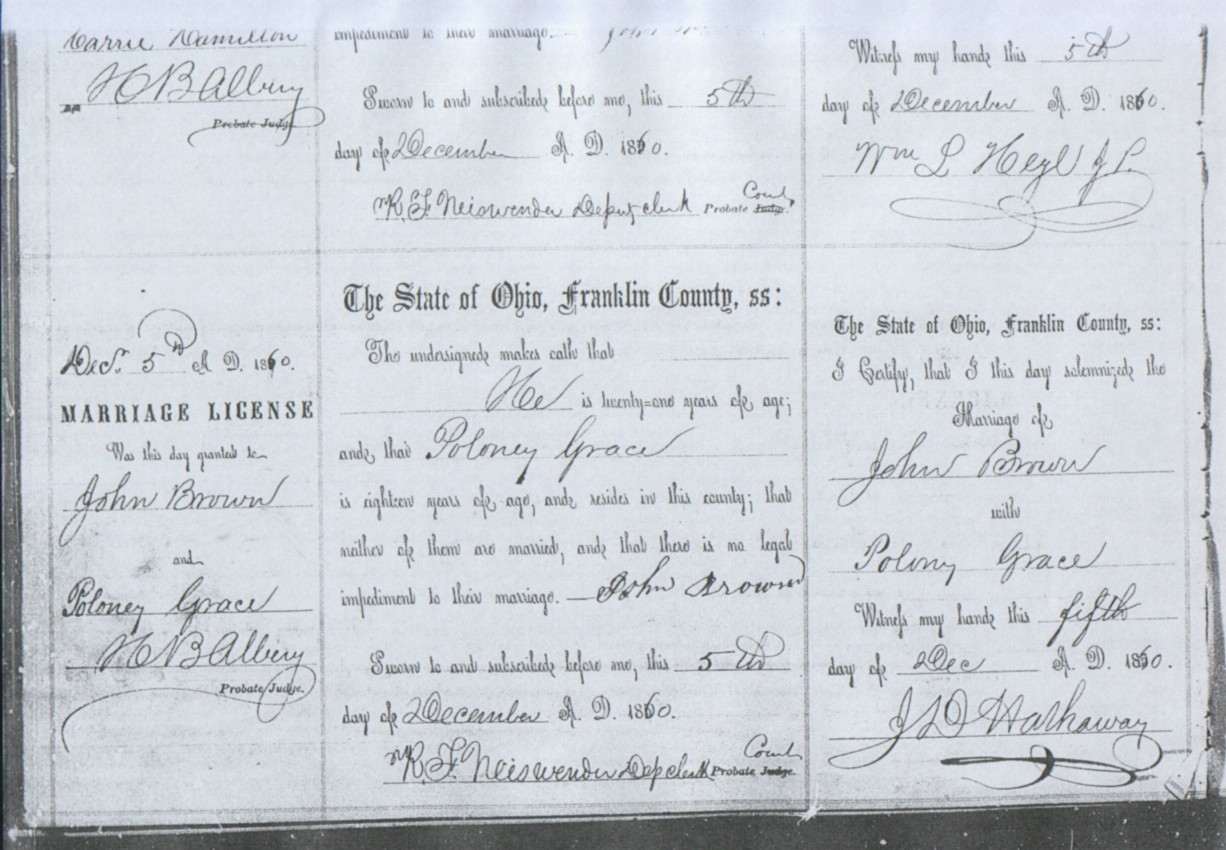 Carrie Hamilton
H B Albery
Probate Judge.
impediment to their marriage. John
Sworn to and subscribed before me, this 5th
day of December A. D. 1860.
R. F. Neiswender Deput clerk Probate Judge. Court
Witness my hand this 5th
day of December A. D. 1860.
Wm L Heyl J. P.
Dec. 5th A D. 1860.
MARRIAGE LICENSE
Was this day granted to
John Brown
and
Poloney Grace
H B Albery
Probate Judge.
The State of Ohio, Franklin County, ss:
The undersigned makes oath that
He is twenty-one years of age;
and that Poloney Grace
is eighteen years of age, and resides in this county; that
neither of them are married, and that there is no legal
impediment to their marriage. John Brown
Sworn to and subscribed before me, this 5th
day of December A. D. 1860.
R. F. Neiswender Dep clerk Probate Judge. Court
The State of Ohio, Franklin County, ss:
I Certify, that I this day solemnized the
Marriage of
John Brown
with
Polony Grace
Witness my hand this fifth
day of Dec A. D. 1860.
J D Hathaway